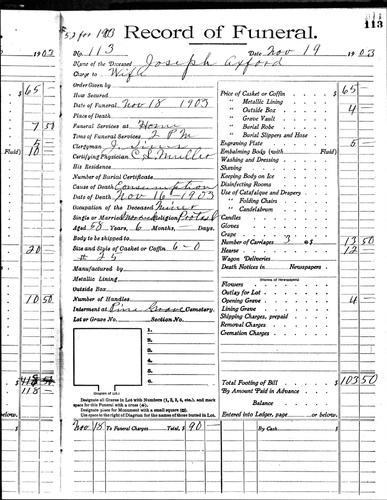 52 for 1903 Record of Funeral. 113
No. 113 Date Nov 19 1903
Name of the Deceased Joseph Axford
Charge to Wife
Order Given by
How Secured
Date of Funeral Nov 18 1903
Place of Death
Funeral Services at Home
Time of Funeral Services 2 P M
Clergyman
Certifying Physician
His Residence
Number of Burial Certificate
Cause of Death Consumption
Date of Death Nov 16 - 1903
Occupation of the Deceased Miner
Single or Married Religion
Aged 58 Years, 6 Months, — Days.
Body to be shipped to
Size and Style of Casket or Coffin 6-0
# 25
Manufactured by
Metallic Lining
Outside Box
Number of Handles
Interment at Pine Grove Cemetery.
Lot or Grave No. Section No.
1.
2.
3.
4.
5.
6.
(Diagram of Lot.)
Designate all Graves in Lot with Numbers (1, 2, 3, 4, etc.), and mark
space for this Funeral with a cross (+).
Designate place for Monument with a small square (□).
Use space to the right of Diagram for the names of those buried in Lot.
Nov 18 To Funeral Charges Total, $ 90 —
Price of Casket or Coffin $ 65 —
" Metallic Lining
" Outside Box 4
" Grave Vault
" Burial Robe
" Burial Slippers and Hose
Engraving Plate 5 —
Embalming Body (with Fluid)
Washing and Dressing
Shaving
Keeping Body on Ice
Disinfecting Rooms
Use of Catafalque and Drapery
" Folding Chairs
" Candelabrum
Candles
Gloves
Crape
Number of Carriages 3 @ $ 13 50
Hearse 12 —
Wagon Deliveries
Death Notices in Newspapers
(Names of Newspapers)
Flowers
Outlay for Lot
Opening Grave 4 —
Lining Grave
Shipping Charges, prepaid
Removal Charges
Cremation Charges
Total Footing of Bill $ 103 50
By Amount Paid in Advance
Balance
Entered into Ledger, page or below.
By Cash $